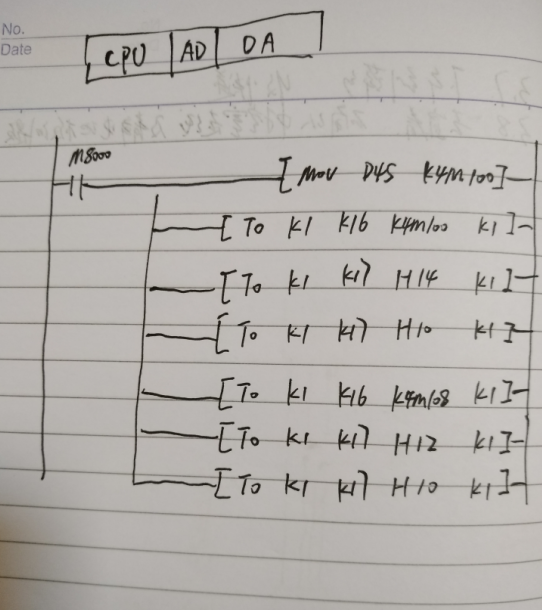 No.
Date
CPU AD DA
M8000
[ MOV D45 K4M100 ]
[ To K1 K16 K4M100 K1 ]
[ To K1 K17 H14 K1 ]
[ To K1 K17 H10 K1 ]
[ To K1 K16 K4M108 K1 ]
[ To K1 K17 H12 K1 ]
[ To K1 K17 H10 K1 ]